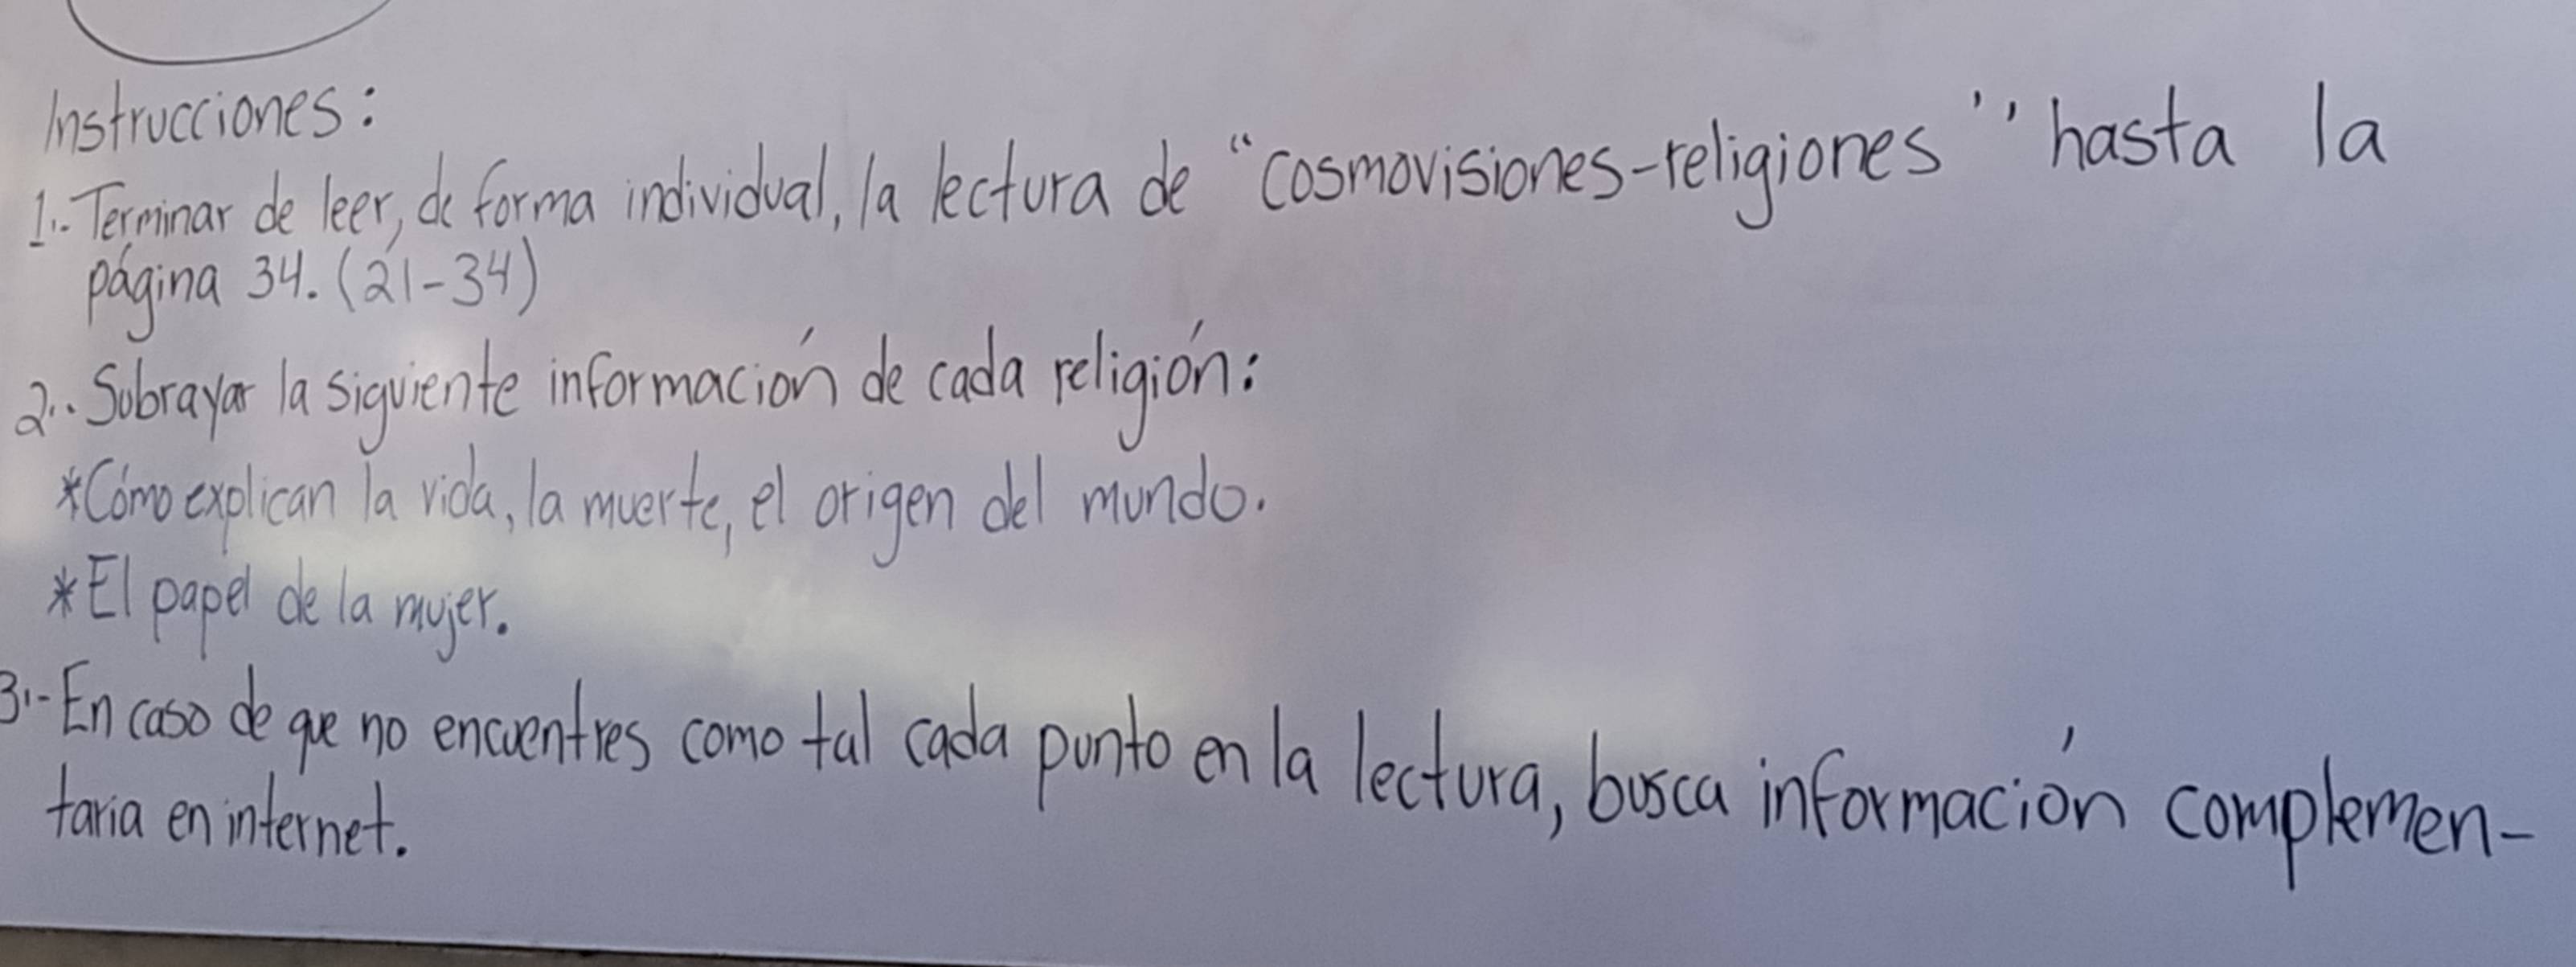 Instrucciones:
1.- Terminar de leer, de forma individual, la lectura de "cosmovisiones-religiones" hasta la
página 34. (21-34)
2.. Subrayar la siguiente información de cada religión:
*Cómo explican la vida, la muerte, el origen del mundo.
*El papel de la mujer.
3.- En caso de que no encuentres como tal cada punto en la lectura, busca información complemen-
taria en internet.